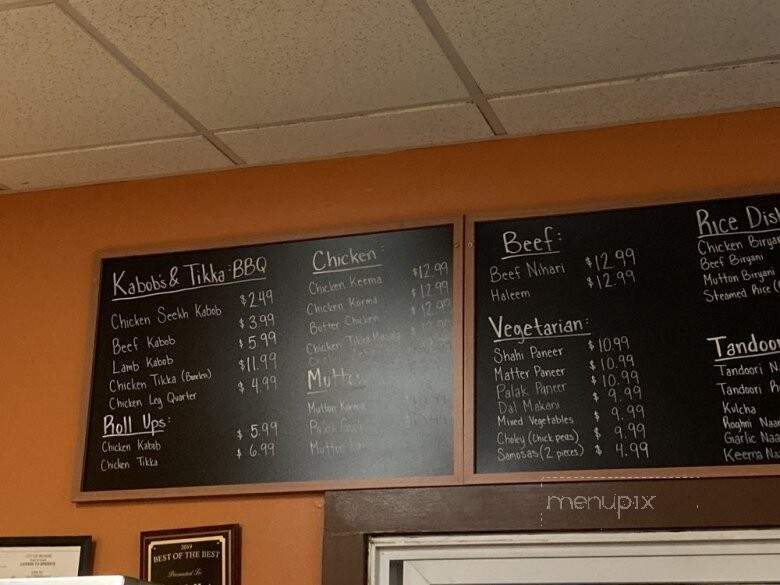 Kabob's & Tikka BBQ
Chicken Seekh Kabob $2.49
Beef Kabob $3.99
Lamb Kabob $5.99
Chicken Tikka (Boneless) $11.99
Chicken Leg Quarter $4.99
Roll Ups:
Chicken Kabab $5.99
Chicken Tikka $6.99
Chicken:
Chicken Keema $12.99
Chicken Korma $12.99
Butter Chicken $12.99
Chicken Tikka Masala
Mutton
Mutton Korma
Palak Gosht
Mutton
Beef:
Beef Nihari $12.99
Haleem $12.99
Vegetarian:
Shahi Paneer $10.99
Matter Paneer $10.99
Palak Paneer $10.99
Dal Makani $9.99
Mixed Vegetables $9.99
Choley (Chick peas) $9.99
Samosas (2 pieces) $4.99
Rice Dis
Chicken Birya
Beef Biryani
Mutton Biryani
Steamed Rice (
Tandoor
Tandoori Na
Tandoori
Kulcha
Roghni Naan
Garlic Naa
Keema Naa
menupix
2019
BEST OF THE BEST
Presented To